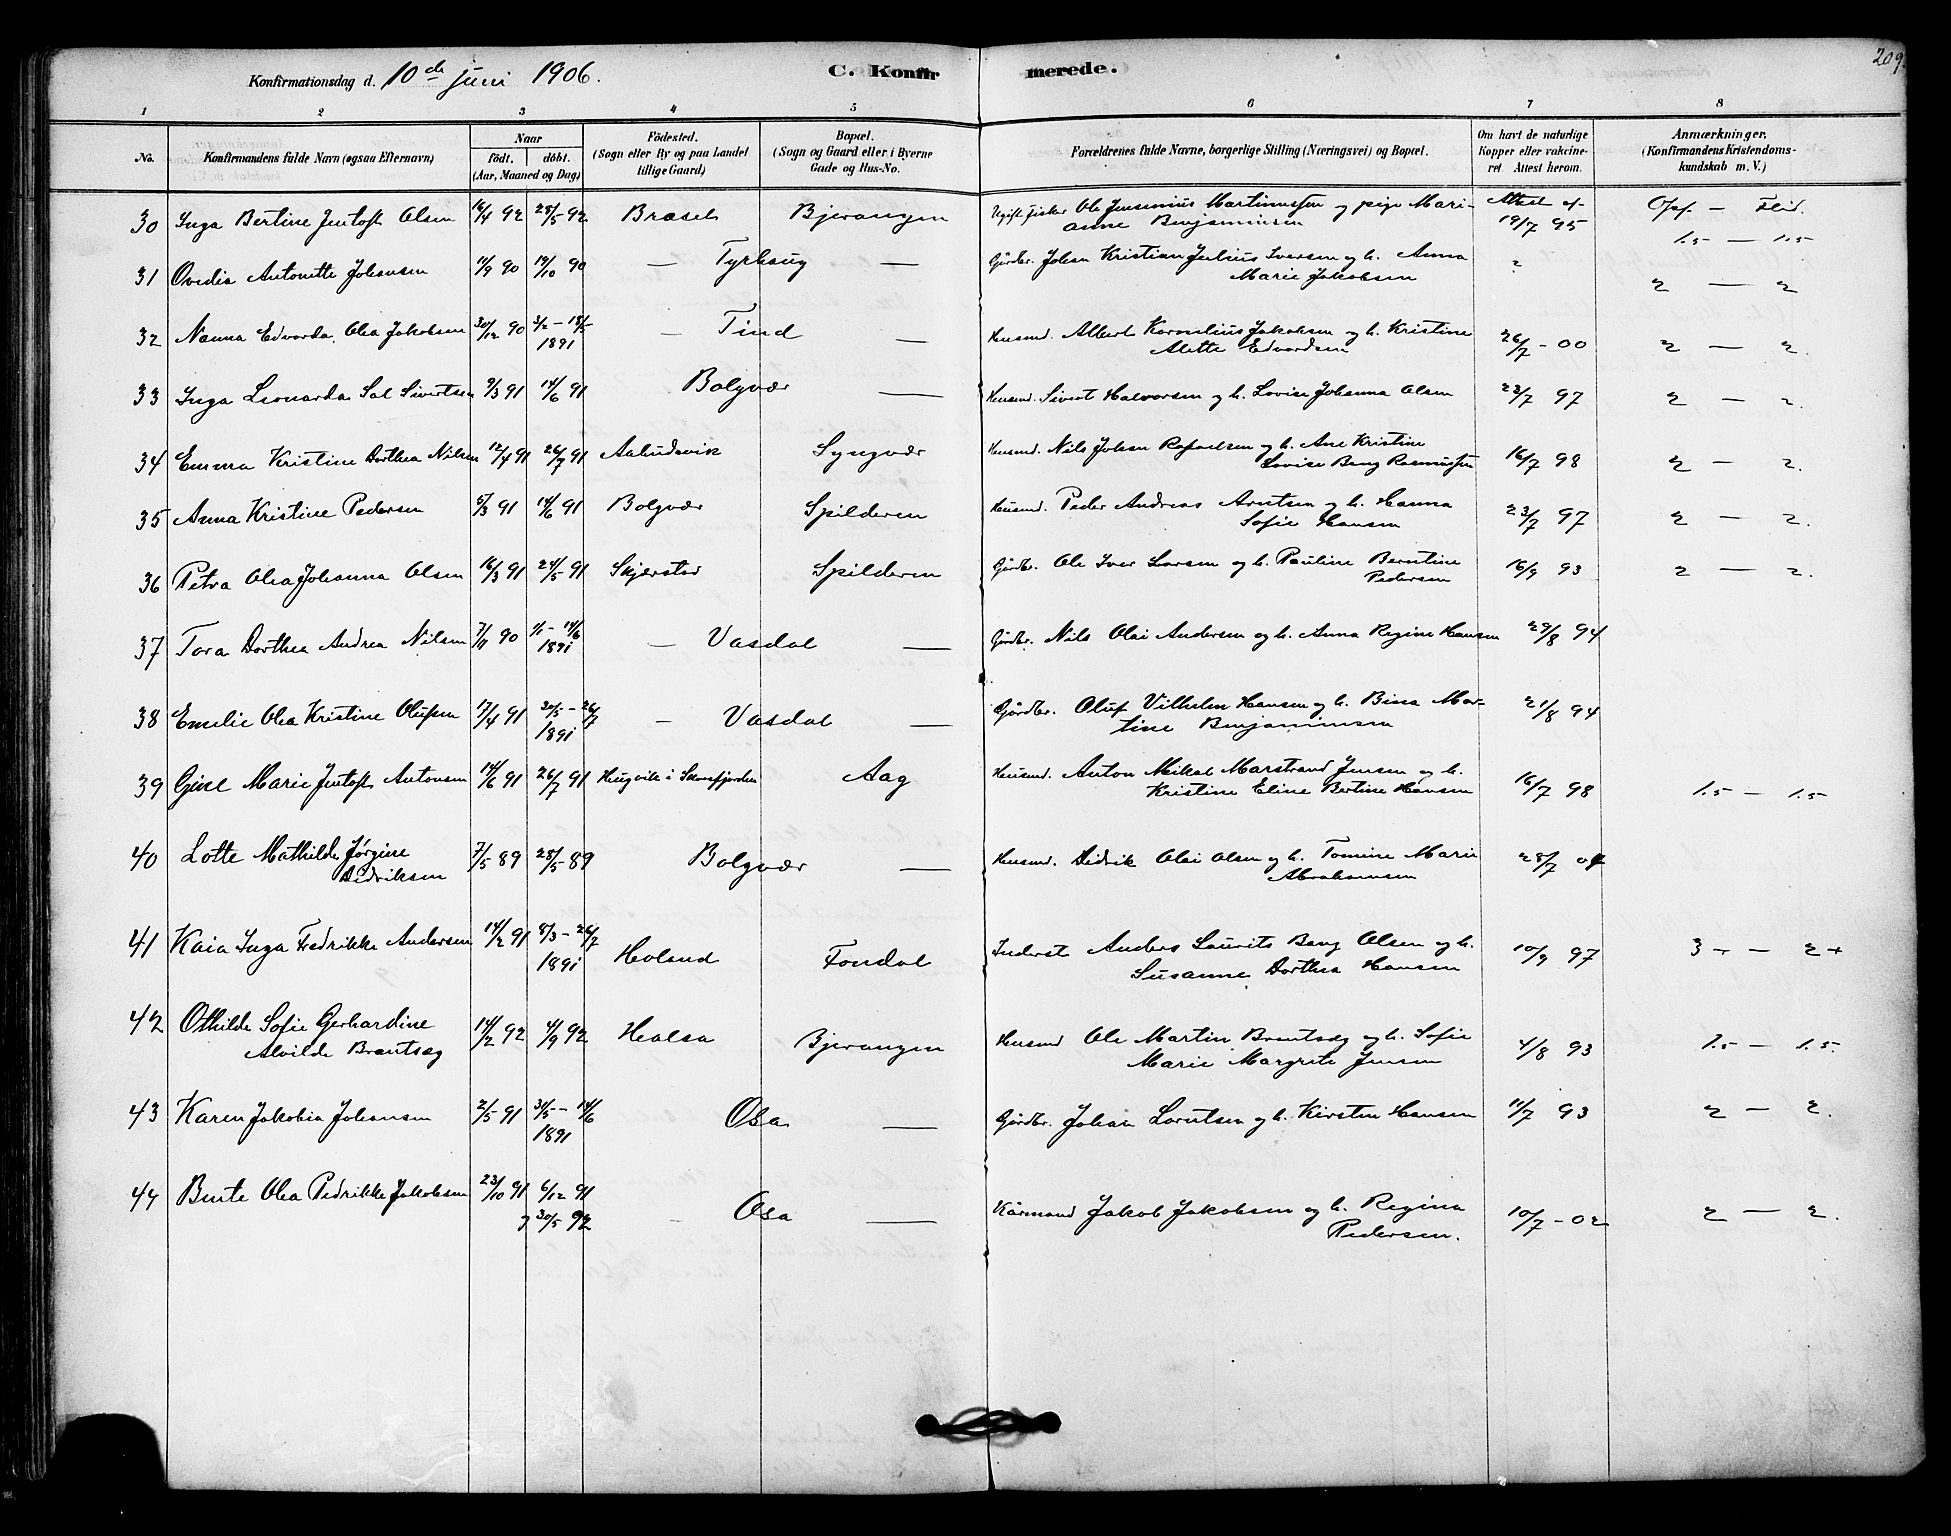 209.
Konfirmationsdag d. 10de juni 1906. C. Konfirmerede.
1 2 3 4 5 6 7 8
No. Konfirmandens fulde Navn (ogsaa Efternavn) Naar födt. döbt. (Aar, Maaned og Dag) Födested. (Sogn eller By og paa Landet tillige Gaard) Bopæl. (Sogn og Gaard eller i Byerne Gade og Hus-No. Forældrenes fulde Navne, borgerlige Stilling (Næringsvei) og Bopæl. Om havt de naturlige Kopper eller vakcineret Attest herom. Anmærkninger. (Konfirmandens Kristendomskundskab m. V.)
30 Inga Bertine Jentoft Olsen 16/4 92 28/5 92 Braset Bjerangen Ugift fisker Ole Jensenius Martinussen og pige Mari- Attest af Opf. — Flid.
anne Benjaminsen 19/7 95 1.5 — 1.5
31 Ovidia Antonette Johansen 11/9 90 19/10 90 — Tyrhaug — Gårdbr. Johan Kristian Julius Iversen og h. Anna
Marie Jakobsen 2 — 2
32 Nanna Edvarda Olea Jakobsen 30/12 90 3/2 – 18/5 1891 — Tind — Husmd. Albert Kornelius Jakobsen og h. Kristine
Alette Edvardsen 26/7 – 00 2 — 2.
33 Inga Leonarda Sal Sivertsen 9/3 91 14/6 91 Bolgvær — Husmd. Sivert Halvorsen og h. Lovise Johanna Olsen 23/7 97 2 — 2.
34 Emma Kristine Dorthea Nilsen 12/4 91 26/7 91 Aaludsvik Syngvær Husmd. Nils Johan Rafaelsen og h. Ane Kristine
Lovise Bang Rasmussen 16/7 98 2 — 2.
35 Anna Kristine Pedersen 5/3 91 14/6 91 Bolgvær Spilderen Husmd. Peder Andreas Arntsen og h. Hanna
Sofie Hansen 23/7 97 2 — 2.
36 Petra Olea Johanna Olsen 16/3 91 24/5 91 Skjærstad Spilderen Gårdbr. Ole Iver Larsen og h. Pauline Berntine
Pedersen 16/9 93 2 — 2.
37 Tora Dorthea Andrea Nilsen 7/11 90 1/1 – 14/6 1891 — Vasdal — Gårdbr. Nils Olai Andersen og h. Anna Regine Hansen 29/8 94
38 Emilie Olea Kristine Olufsen 17/4 91 20/5 – 26/7 1891 — Vasdal — Gårdbr. Oluf Vilhelm Hansen og h. Bina Mar-
tine Benjaminsen 21/8 94
39 Gjerl Marie Jentoft Antonsen 14/6 91 26/7 91 Haugvik i Skarsfjorden Aag Husmd. Anton Mikal Marstrand Jensen og h.
Kristine Eline Bertine Hansen 16/7 98 1.5 — 1.5
40 Lotte Mathilde Jørgine 7/5 89 28/5 89 Bolgvær — Husmd. Didrik Olai Olsen og h. Tomine Marie 28/7 04
Didriksen Abrahamsen
41 Kaia Inga Fredrikke Andersen 14/2 91 8/3 – 26/7 1891 Holand Fondal Inderst Anders Laurits Bang Olsen og h.
Susanne Dorthea Hansen 10/9 97 3+ — 2+
42 Othilde Sofie Gerhardine 14/2 92 4/9 92 Halsa Bjerangen Husmd Ole Martin Brentsæg og h. Sofie
Alvilde Brentsæg Marie Margrete Jensen 4/8 93 1.5 — 1.5.
43 Karen Jakobia Johansen 2/5 91 31/5 – 14/6 1891 Osa — Gårdbr. Johan Lorntsen og h. Kirsten Hansen 11/7 93 2 — 2.
44 Bente Olea Pedrikke Jakobsen 23/10 91 6/12 91
og 30/5 92 — Osa — Kårmand Jakob Jakobsen og h. Regina
Pedersen. 10/7 – 02 2 — 2.